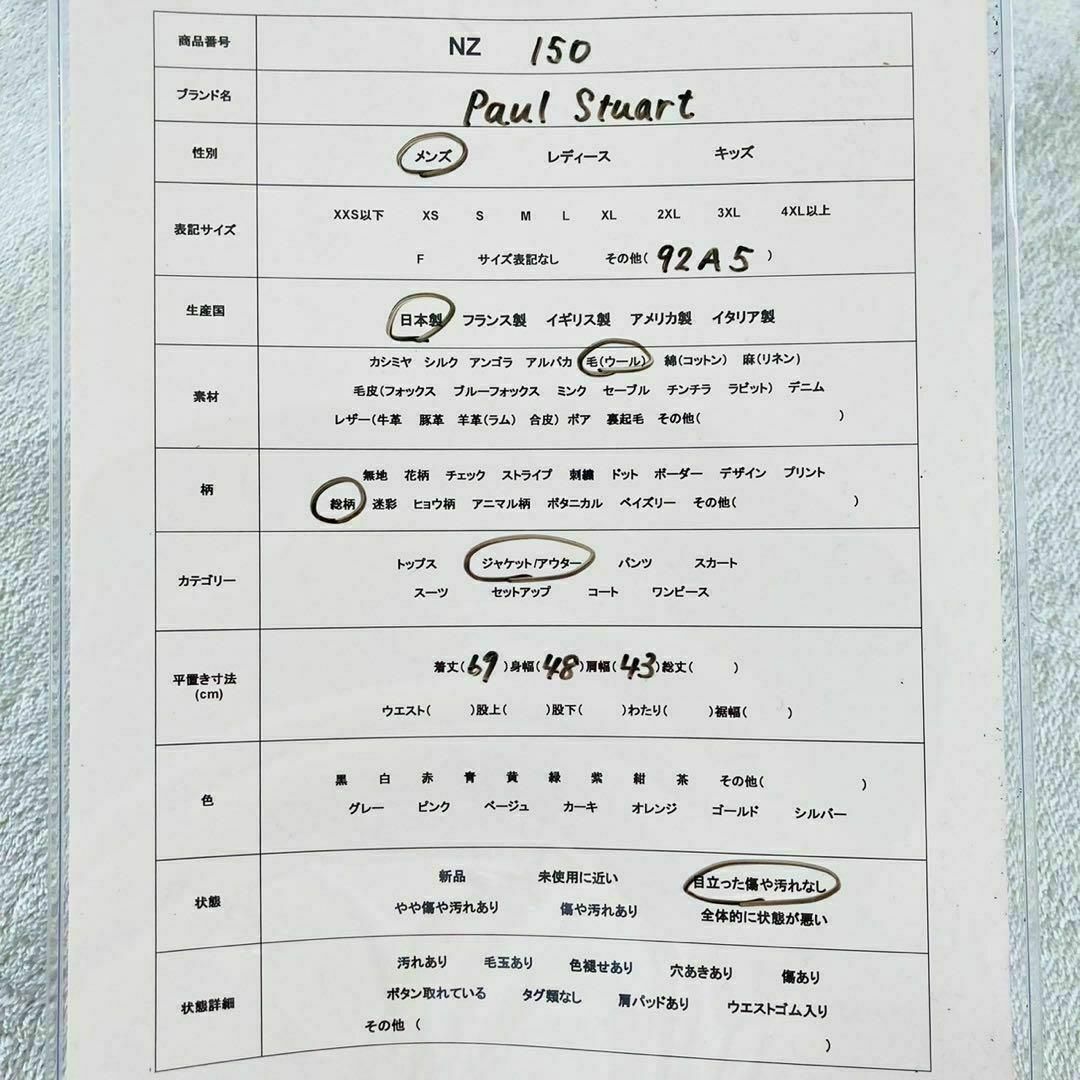 商品番号 NZ 150
ブランド名 Paul Stuart
性別 メンズ レディース キッズ
表記サイズ
XXS以下 XS S M L XL 2XL 3XL 4XL以上
F サイズ表記なし その他( 92A5 )
生産国 日本製 フランス製 イギリス製 アメリカ製 イタリア製
素材
カシミヤ シルク アンゴラ アルパカ 毛(ウール) 綿(コットン) 麻(リネン)
毛皮(フォックス ブルーフォックス ミンク セーブル チンチラ ラビット) デニム
レザー(牛革 豚革 羊革(ラム) 合皮) ボア 裏起毛 その他( )
柄
無地 花柄 チェック ストライプ 刺繍 ドット ボーダー デザイン プリント
総柄 迷彩 ヒョウ柄 アニマル柄 ボタニカル ペイズリー その他( )
カテゴリー
トップス ジャケット/アウター パンツ スカート
スーツ セットアップ コート ワンピース
平置き寸法
(cm)
着丈( 69 )身幅( 48 )肩幅( 43 )総丈( )
ウエスト( )股上( )股下( )わたり( )裾幅( )
色
黒 白 赤 青 黄 緑 紫 紺 茶 その他( )
グレー ピンク ベージュ カーキ オレンジ ゴールド シルバー
状態
新品 未使用に近い 目立った傷や汚れなし
やや傷や汚れあり 傷や汚れあり 全体的に状態が悪い
状態詳細
汚れあり 毛玉あり 色褪せあり 穴あきあり 傷あり
ボタン取れている タグ類なし 肩パッドあり ウエストゴム入り
その他 ( )